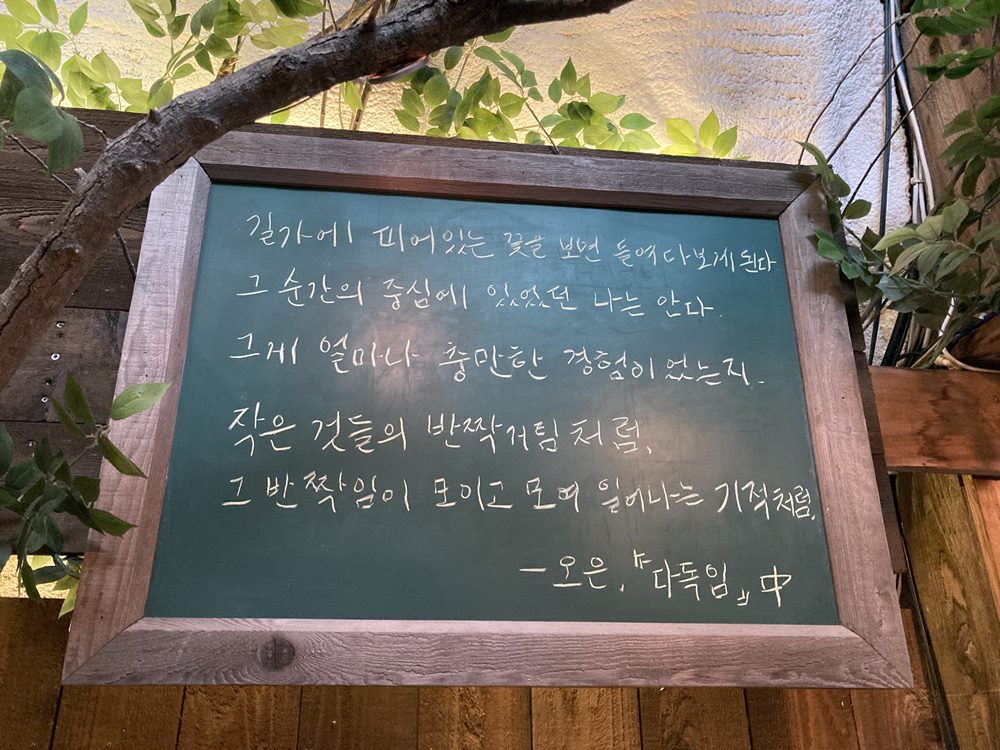 길가에 피어있는 꽃을 보면 들여다보게 된다
그 순간의 중심에 있었던 나는 안다.
그게 얼마나 충만한 경험이었는지.
작은 것들의 반짝거림처럼,
그 반짝임이 모이고 모여 일어나는 기적처럼.
- 오은, 『다독임』 中